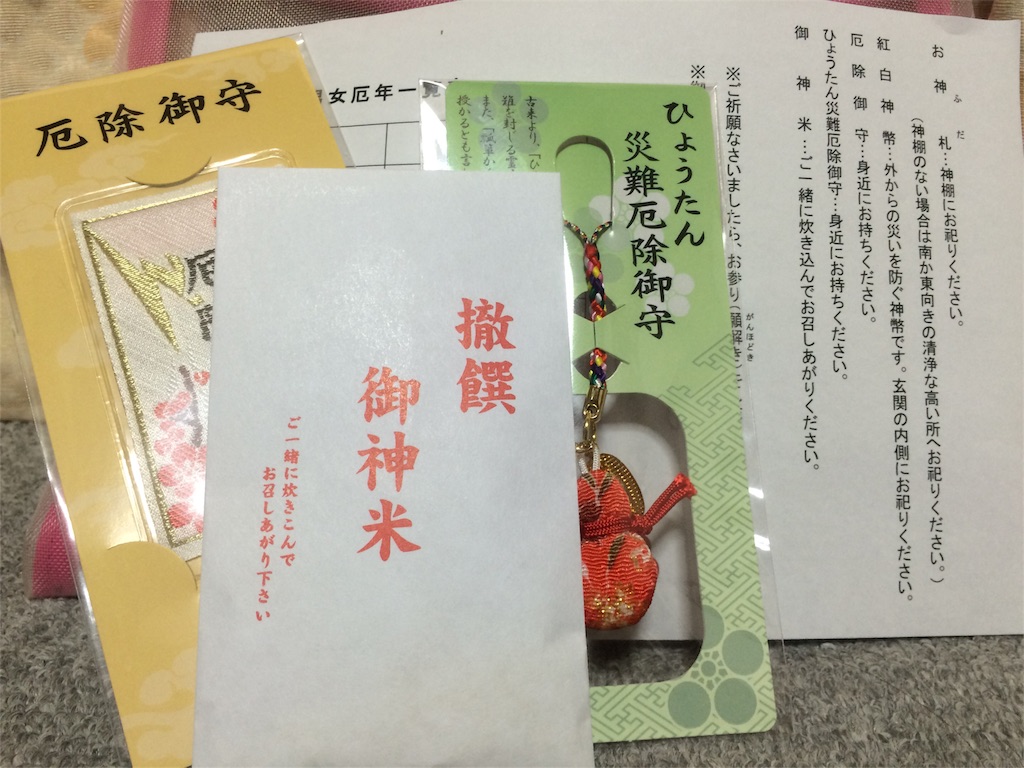 お神札…神棚にお祀りください。
ふだ
(神棚のない場合は南か東向きの清浄な高い所へお祀りください。)
紅白神幣…外からの災いを防ぐ神幣です。玄関の内側にお祀りください。
厄除御守…身近にお持ちください。
ひょうたん災難厄除御守…身近にお持ちください。
御神米…ご一緒に炊き込んでお召しあがりください。
※ご祈願なさいましたら、お参り(願解き
がんほどき
※
女厄年一覧
ひょうたん
災難厄除御守
古来より、「ひ
難を封じる霊
また、「瓢箪か
授かるとも言
厄除御守
撤饌
御神米
ご一緒に炊きこんで
お召しあがり下さい